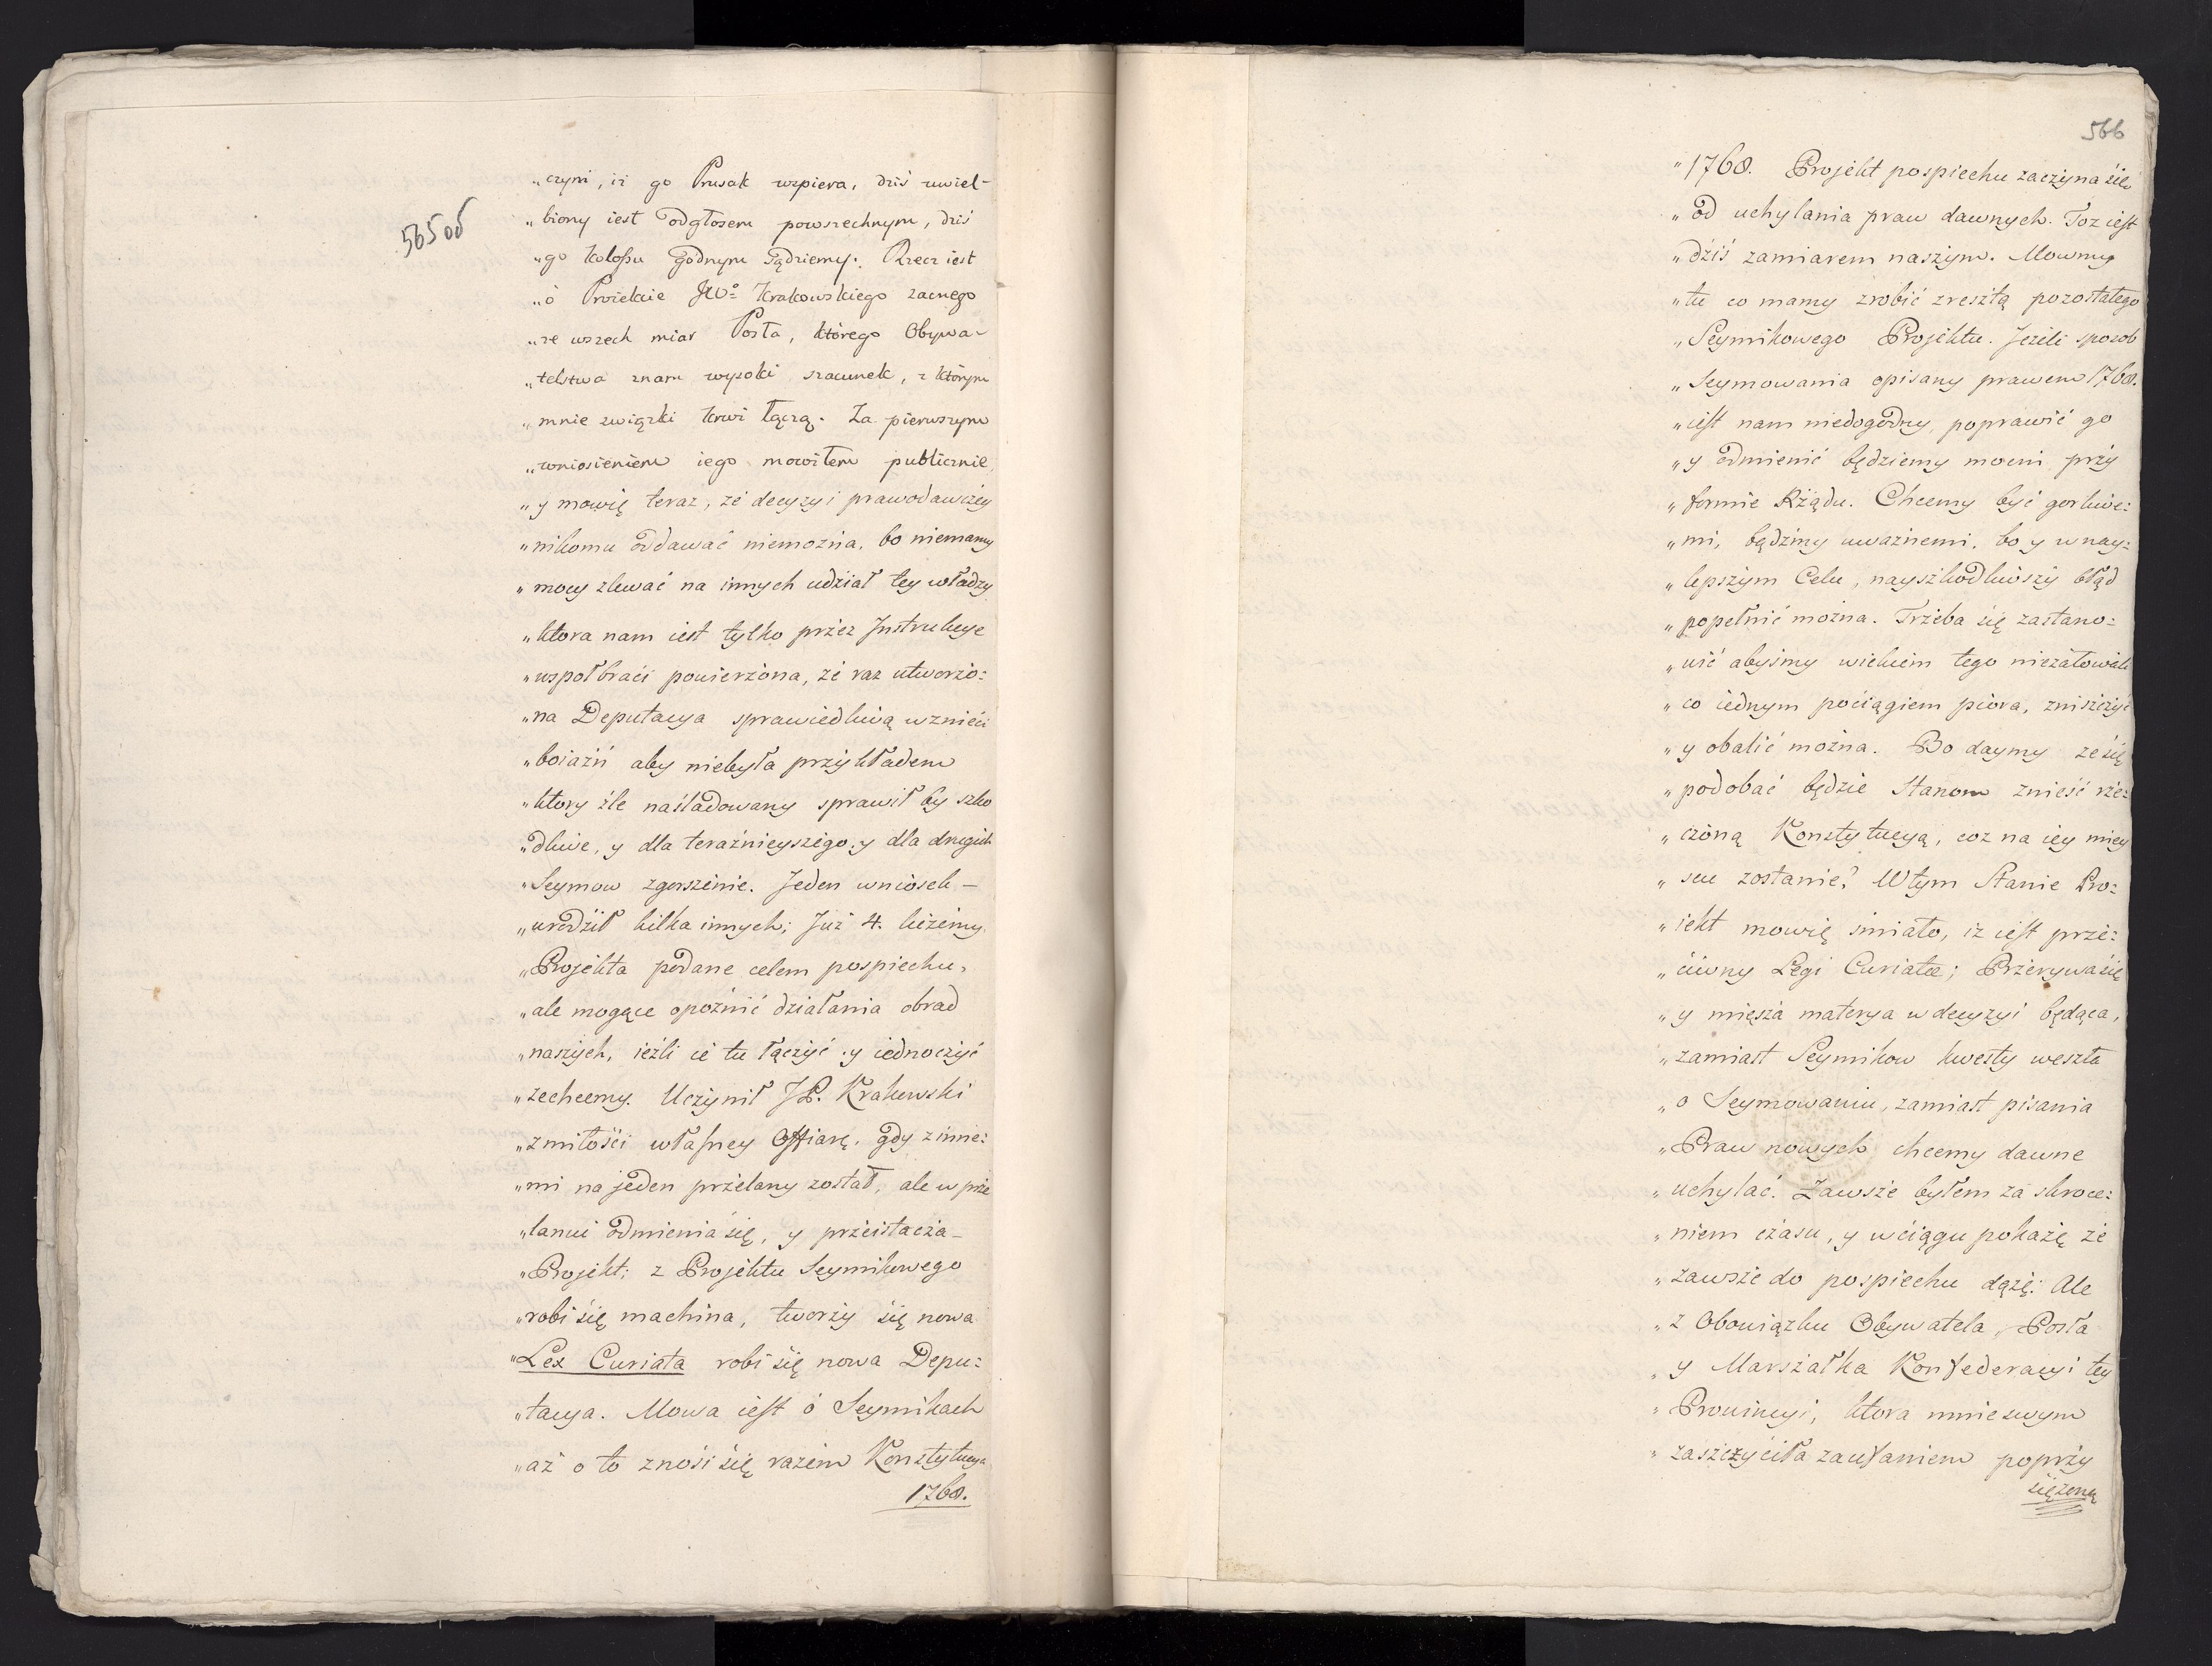 565 об
„czyni, iż go Prusak wspiera, dziś uwiel-
„biony iest odgłosem powszechnym, dziś
„go kolossu godnym sądziemy. Rzecz iest
„ò Proiekcie JW° Krakowskiego zacnego
„ze wszech miar Posła, którego Obywa-
„telstwa znam wysoki szacunek, z którym
„mnie związki krwi łączą. Za pierwszym
„wniosieniem iego mowiłem publicznie
„y mowię teraz, że decyzyi prawodawczey
„nikomu oddawać niemożna, bo niemamy
„mocy zlewać na innych udział tey władzy
„ktora nam iest tylko przez Instrukcye
„wspołbraci powierzona, że raz utworzo=
„na Deputacya sprawiedliwą wznieci
„boiaźń aby niebyła przykładem
„ktory źle naśladowany sprawił by szko
„dliwe, y dla teraźnieyszego y dla drugich
„Seymow zgorszenie. Jeden wniosek –
„urodził kilka innych; Już 4. liczemy
„Projekta podane celem pospiechu,
„ale mogące opoźnić działania obrad
„naszych, ieźli ie tu łączyć y iednoczyć
„zechcemy. Uczynił JP. Krakowski
„z miłości własney Offiarę, gdy z inne=
„mi na jeden przelany został, ale w prze
„laniu odmienia się, y przeistacza –
„Projekt; z Projektu Seymikowego
„robi się machina, tworzy się nowa
„Lex Curiata robi się nowa Depu=
„tacya. Mowa iest ò Seymikach
„aż o to znosi się razem Konstytucya
1768.
566
„1768. Projekt pospiechu zaczyna się
„od uchylania praw dawnych. Toż iest
„dziś zamiarem naszym. Mowmy
„tu co mamy zrobić z resztą pozostałego
„Seymikowego Projektu. Jeżeli sposob
„Seymowania opisany prawem 1768.
„iest nam niedogodny, poprawić go
„y odmienić będziemy mocni przy
„formie Rządu. Chcemy być gorliwe=
„mi, bądźmy uważnemi, bo y w nay=
„lepszym Celu, nayszkodliwszy błąd
„popełnić można. Trzeba się zastano=
„wić abyśmy wiekiem tego nieżałowali
„co iednym pociągiem piora, zniszczyć
„y obalić można. Bo daymy że się
„podobać będzie Stanom znieść rze=
„czoną Konstytucyą, coż na iey miey
„scu zostanie? W tym Stanie Pro=
„iekt mowię śmiało, iż iest prze=
„ciwny Legi Curiatæ; Przerywa się
„y mięsza materya w decyzyi będąca,
„zamiast Seymikow kwesty weszła
„o Seymowaniu, zamiast pisania
„Praw nowych chcemy dawne
„uchylać. Zawsze byłem za skroce=
„niem czasu, y w ciągu pokażę że
„zawsze do pospiechu dążę: Ale
„z Obowiązku Obywatela, Posła
„y Marszałka Konfederacyi tey
„Prowincyi, ktora mnie swym
„zaszczyciła zaufaniem poprzy
sięzoną